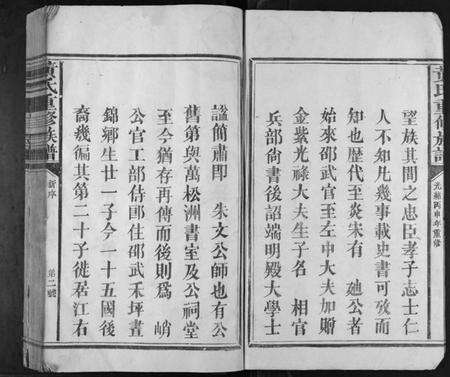 黃氏重修族譜
光緒丙申年重修
望族其間之忠臣孝子志士仁
人不知凡幾事載史書可攷而
知也歷代至炎宋有 廸公者
始來邵武官至左中大夫加贈
金紫光祿大夫生子名 相官
兵部尙書後詔端明殿大學士
諡簡肅卽 朱文公師也有公
舊第與萬松洲書室及公祠堂
至今猶存再傳而後則爲 峭
公官工部侍郎住邵武禾坪晝
錦鄉生廿一子今一十五國後
裔幾徧其第二十子徙居江右
黃氏重修族譜
新序
第二號